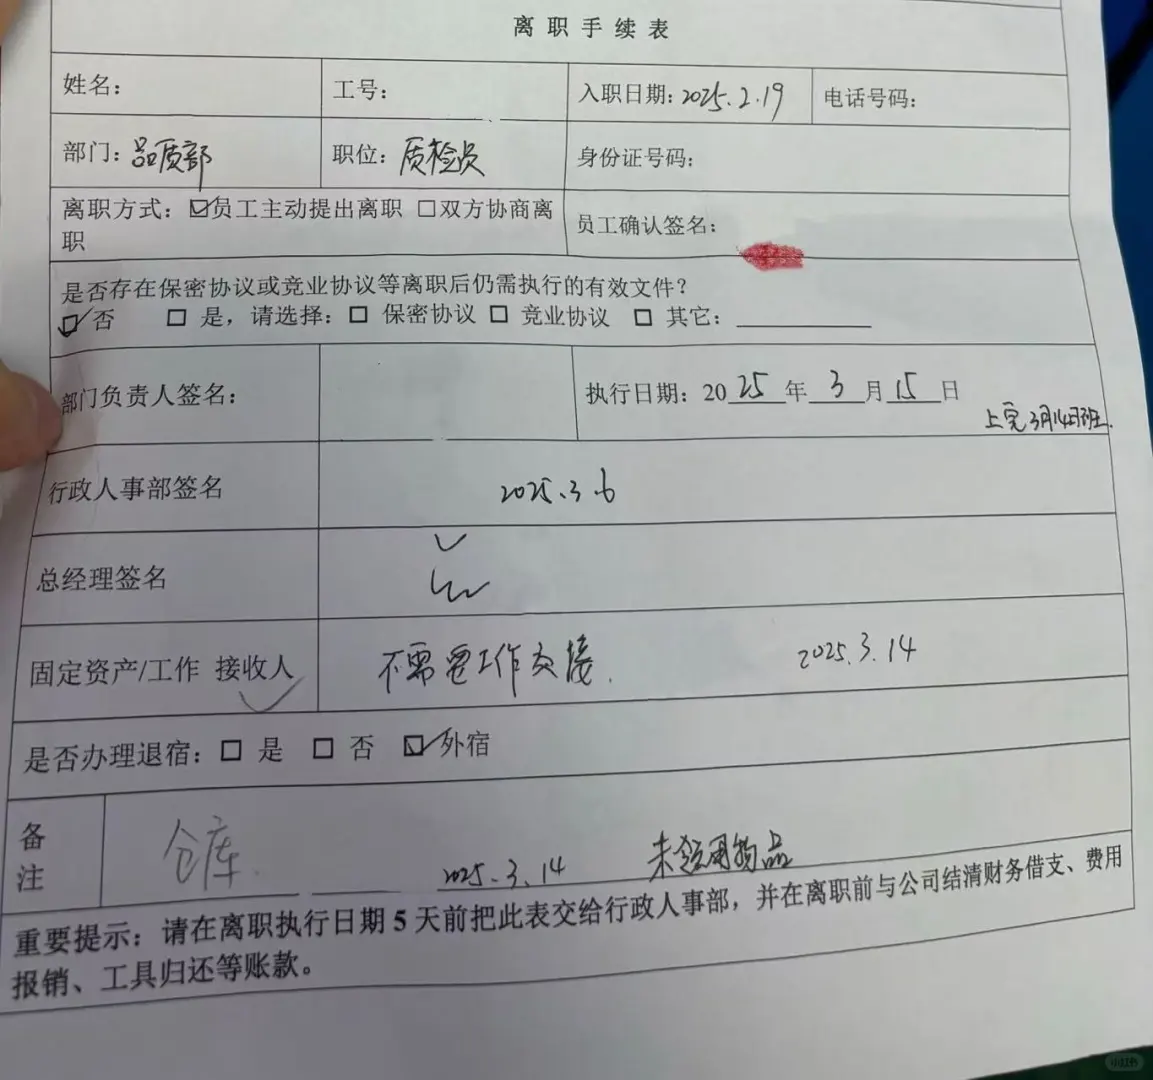 离职手续表
姓名： 工号： 入职日期：2025.2.19 电话号码：
部门：品质部 职位：质检员 身份证号码：
离职方式：☑员工主动提出离职 □双方协商离
职
员工确认签名：
是否存在保密协议或竞业协议等离职后仍需执行的有效文件？
☑ 否 □ 是，请选择：□ 保密协议 □ 竞业协议 □ 其它：
部门负责人签名： 执行日期：2025年3月15日
上完3月14日班.
行政人事部签名 2025.3.6
总经理签名
固定资产/工作 接收人 不需要工作交接. 2025.3.14
是否办理退宿：□ 是 □ 否 ☑外宿
备
注
仓库. 2025.3.14 未领用物品
重要提示：请在离职执行日期5天前把此表交给行政人事部，并在离职前与公司结清财务借支、费用
报销、工具归还等账款。
小红书